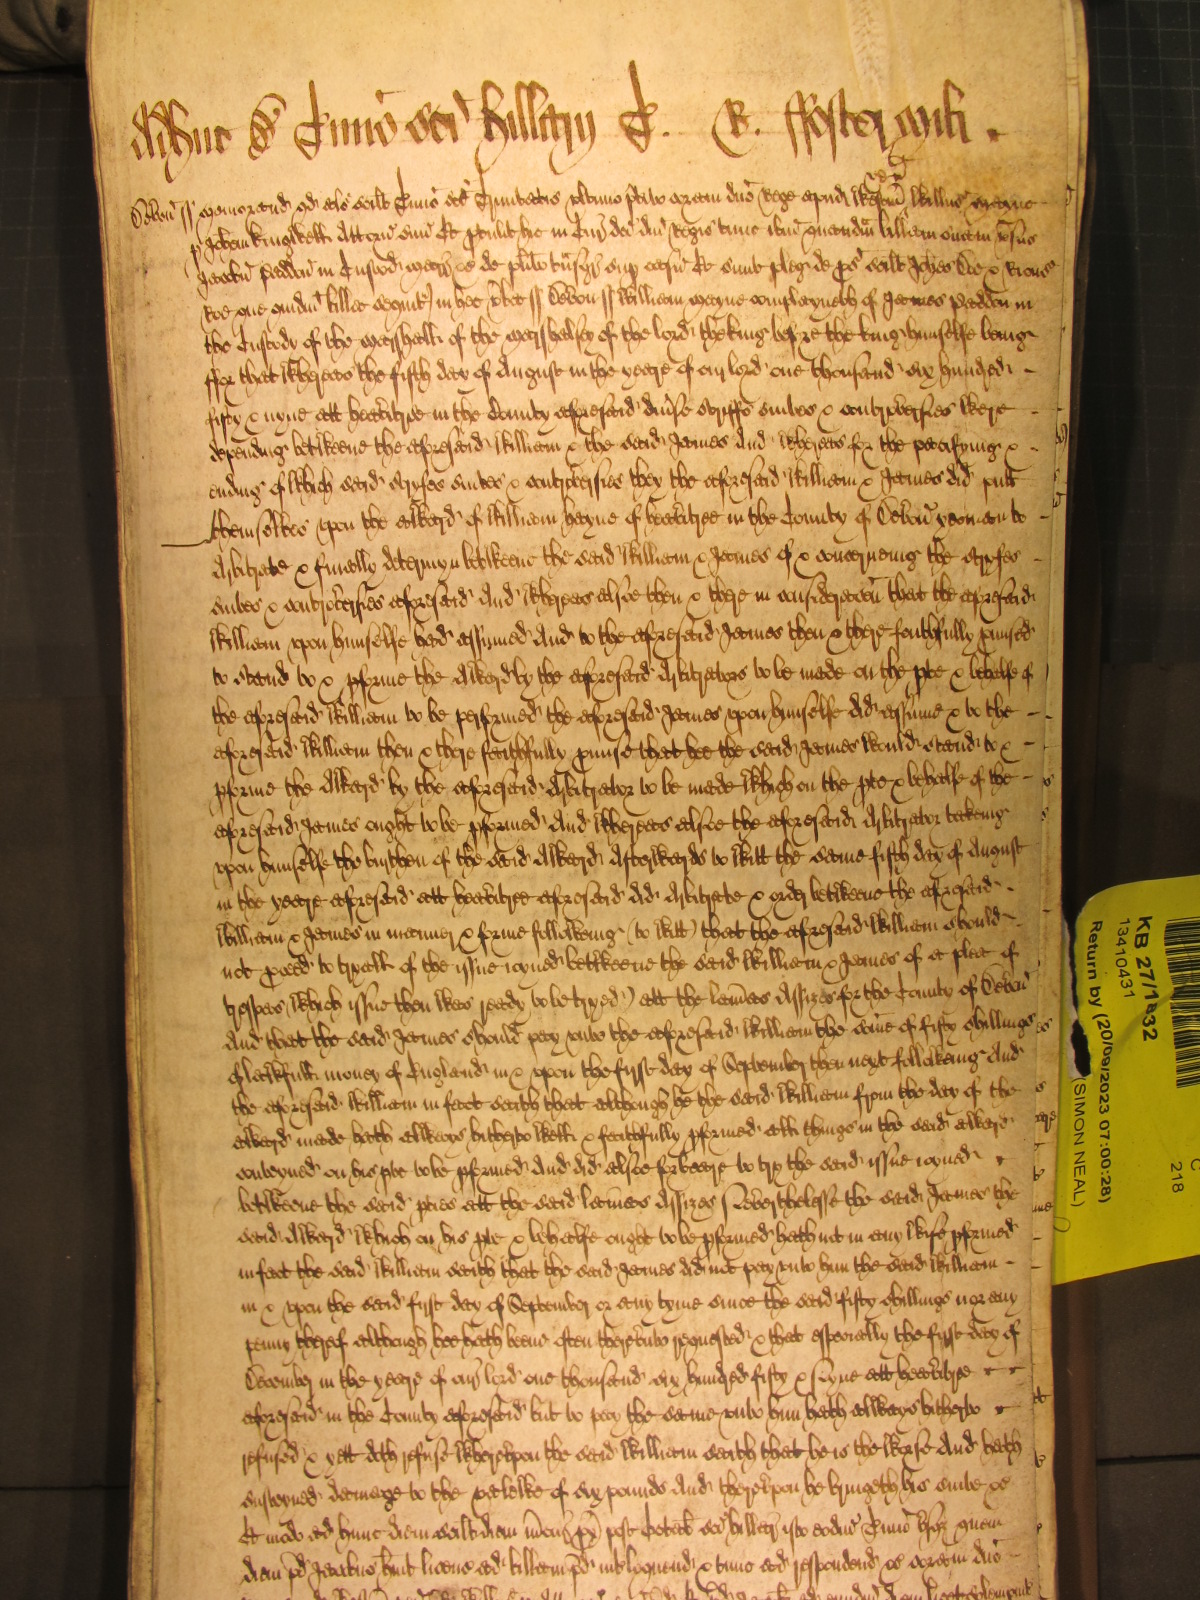 Adhuc de Termino sci Hillarij R. ffoster milit
Devon ss Memorand qd als scilt Termino sce Trinitatis ultimo prito coram dno Rege apud Westm Willus Mayne
p Johem Kinglwell Attorn suu Et ptulit hic in Cur dci dni Regis tunc ibm quandm billam suam vsus
Jacobu Peddon in Custod marr &c de plito tnsgr sup casu Et sunt pleg de ps scilt Johes Doe & Ricus
Roe que quidm billa sequit in hec vba ss Devon ss William Mayne complayneth of James Peddon in
the Custody of the Marshall of the Marshalsey of the lord the king before the king himselfe being
ffor that Whereas the fifth day of August in the yeare of our lord one thousand six hundred
fifty & nyne att heavitree in the County aforesaid divse stryffs suites & controversies were
depending betweene the aforesaid William & the said James And Whereas for the pacifying &
ending of which said stryfes suites & controversies they the aforesaid William & James did putt
themselves upon the award of William hayne of heavitree in the County of Devon yeoman to
Arbitrate & finally determyn betweene the said William & James of & concerneing the stryfes
suites & controversies aforesaid And Whereas alsoe then & there in consideracon that the aforesaid
William upon himselfe had assumed And to the aforesaid James then & there faithfully pmised
to stand to & pforme the Award by the aforesaid Arbitrators to be made on the pte & behalfe of
the aforesaid William to be performed the aforesaid James upon himselfe did assume & to the
aforesaid William then & there faithfully pmise that hee the said James would stand to &
pforme the Award by the aforesaid Arbitrator to be made which on the pte & behalfe of the
aforesaid James ought to be pformed And Whereas alsoe the aforesaid Arbitrator takeing
upon himselfe the burthen of the said Award Afterwards to witt the same fifth day of August
in the yeare aforesaid att heavitree aforesaid did Arbitrate & order betweene the aforesaid
William & James in manner & forme followeing (to witt) that the aforesaid William should
not pceed to tryall of the issue ioyned betweene the said William & James of a plea of
trespas (which issue then was ready to be tryed) att the lammas Assizes for the County of Devon
And that the said James should pay unto the aforesaid William the same of fifty shillings
of lawfull money of England in & upon the first day of September then next followeing And
the aforesaid William in fact saith that although he the said William from the day of the
award made hath allwayes hitherto well & faithfully pformed all things in the said award
conteyned on his pte to be pformed And did alsoe forbeare to try the said issue ioyned
betweene the said pties att the said lammas Assizes Neverthelesse the said James the
said Award which on his pte & behalfe ought to be pformed hath not in any wise pformed
in fact the said William saith that the said James did not pay unto him the said William
in & upon the said first day of September or any tyme since the said fifty shillings nor any
penny thereof although hee hath beene often thereunto requested & that especially the first day of
December in the yeare of our lord one thousand six hundred fifty & nyne att heavitree
aforesaid in the County aforesaid but to pay the same unto him hath allwayes hitherto
refused & yett doth refuse Whereupon the said William saith that he is the worse And hath
susteyned damage to the valewe of six pounds And thereupon he bringeth his suite &c
Et modo ad hunc diem scilt diem px post Octab sci hillar isto eodm Termino usq quem
diem pd Jacobus huit licenc ad billam pd interloquend & tunc ad respondend &c coram dno
KB 27/1832
13410431
Return by (20/09/2023 07:00:28)
(SIMON NEAL)
218